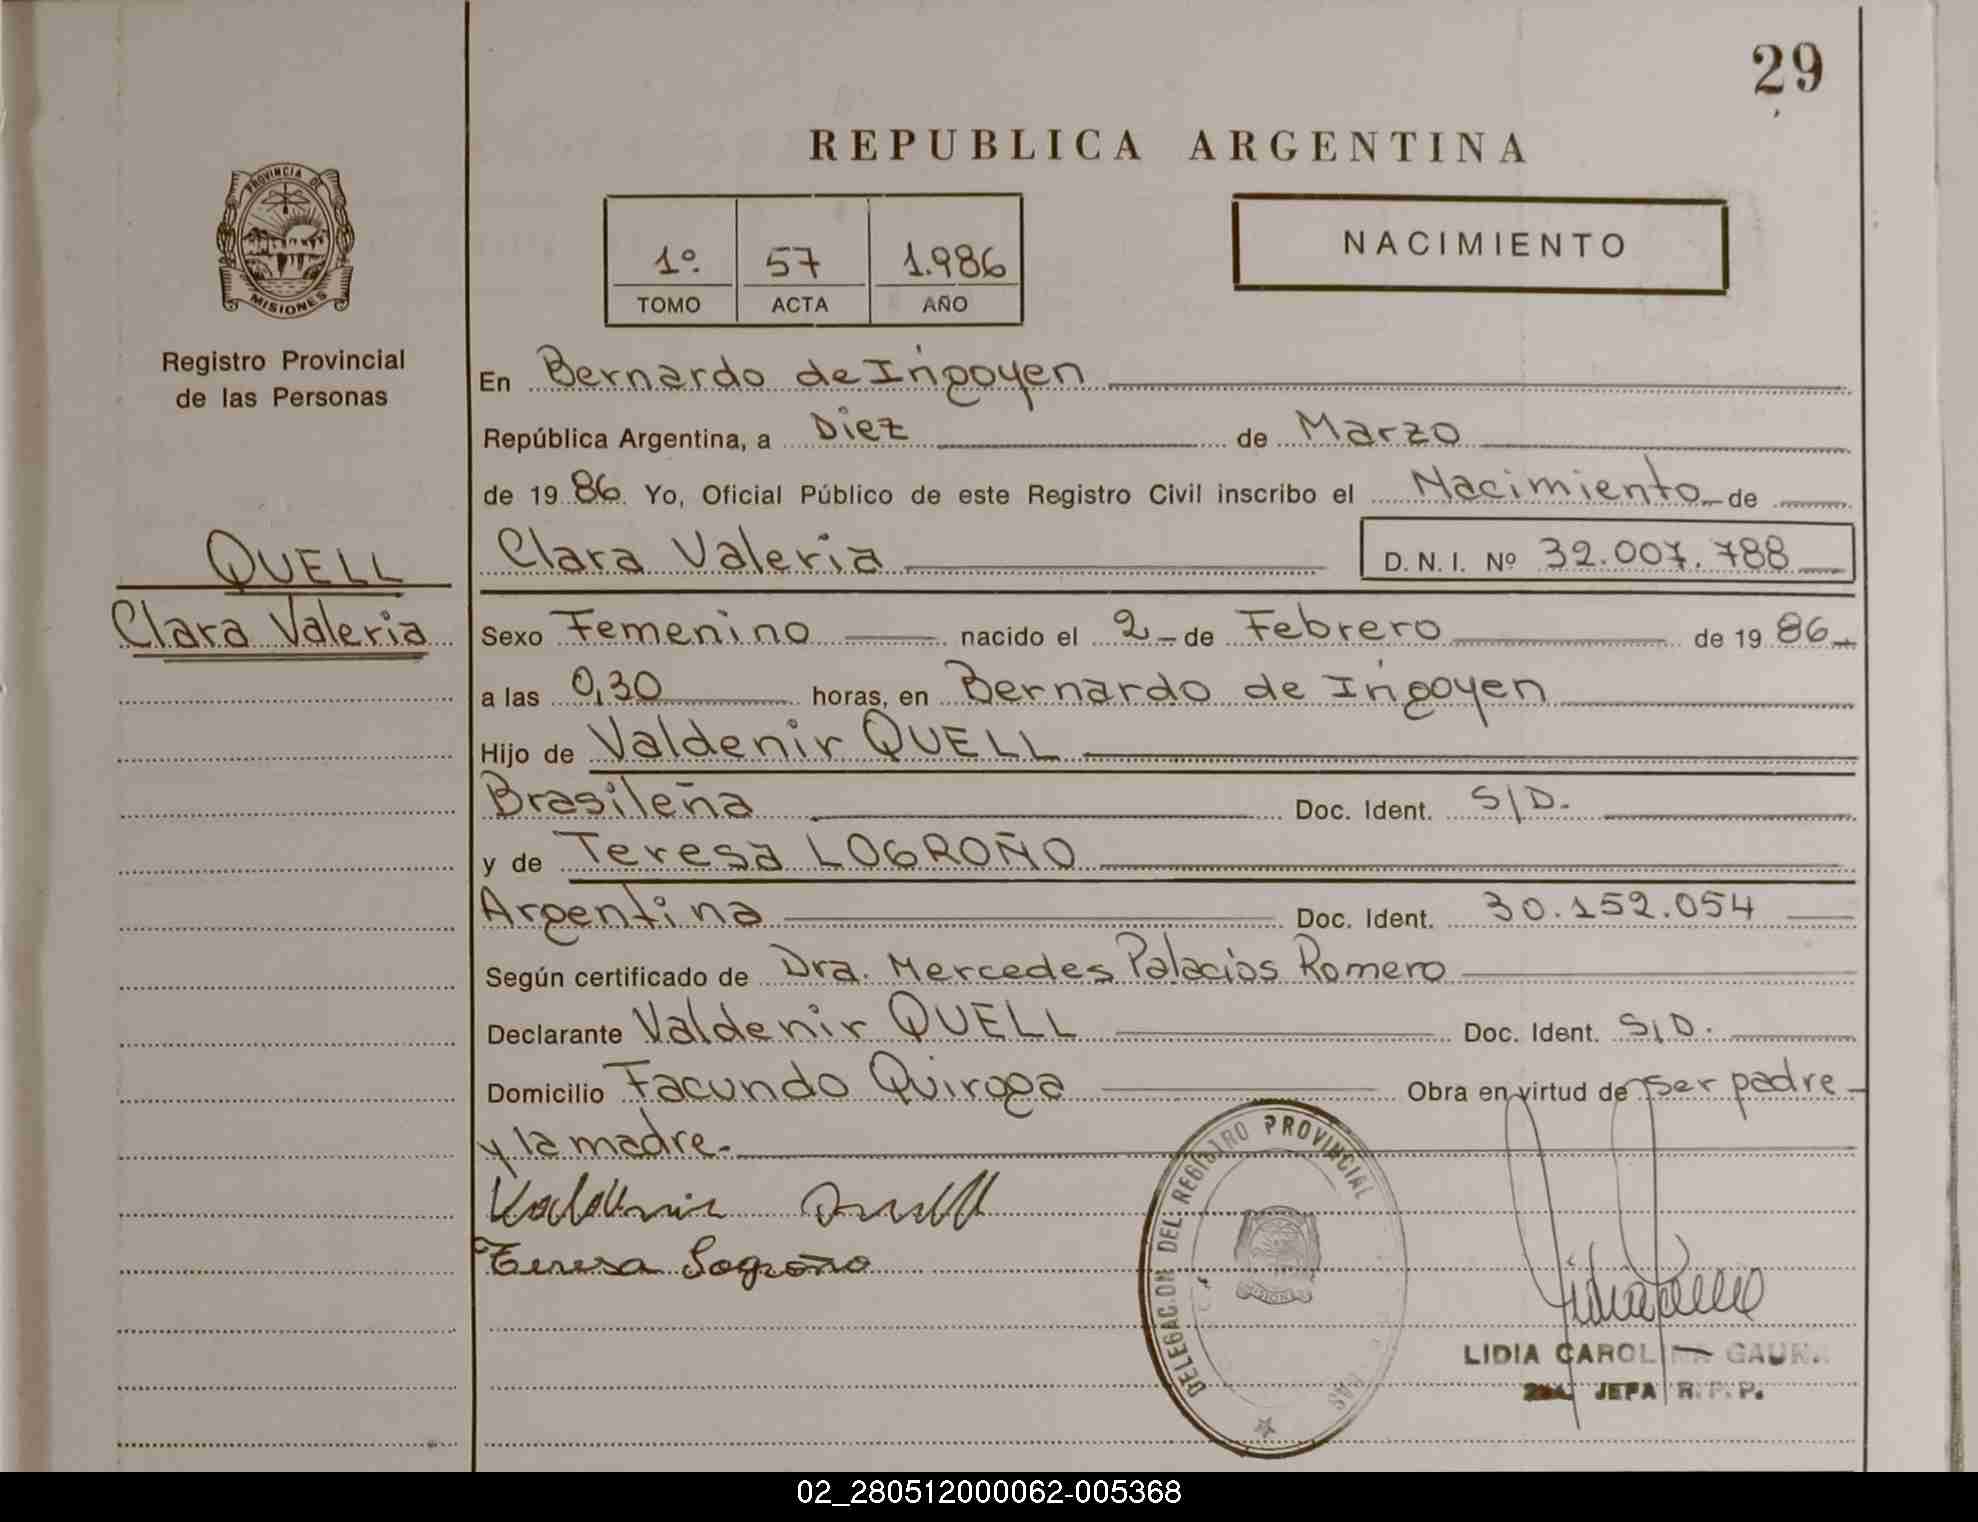 29
REPUBLICA ARGENTINA
PROVINCIA DE
MISIONES
Registro Provincial
de las Personas
1º. 57 1.986
TOMO ACTA AÑO
NACIMIENTO
En Bernardo de Irigoyen
República Argentina, a Diez de Marzo
de 1986 Yo, Oficial Público de este Registro Civil inscribo el Nacimiento de
QUELL
Clara Valeria
Clara Valeria D. N. I. Nº 32.007.788
Sexo Femenino nacido el 2 de Febrero de 1986
a las 0,30 horas, en Bernardo de Irigoyen
Hijo de Valdenir QUELL
Brasileña Doc. Ident. S/D.
y de Teresa LOGROÑO
Argentina Doc. Ident. 30.152.054
Según certificado de Dra. Mercedes Palacios Romero
Declarante Valdenir QUELL Doc. Ident. S/D.
Domicilio Facundo Quiroga Obra en virtud de ser padre
y la madre.
Valdenir Quell
Teresa Logroño
DELEGACION DEL REGISTRO PROVINCIAL
MISIONES
LIDIA CAROLINA GAUNA
JEFA R.P.P.
02_280512000062-005368